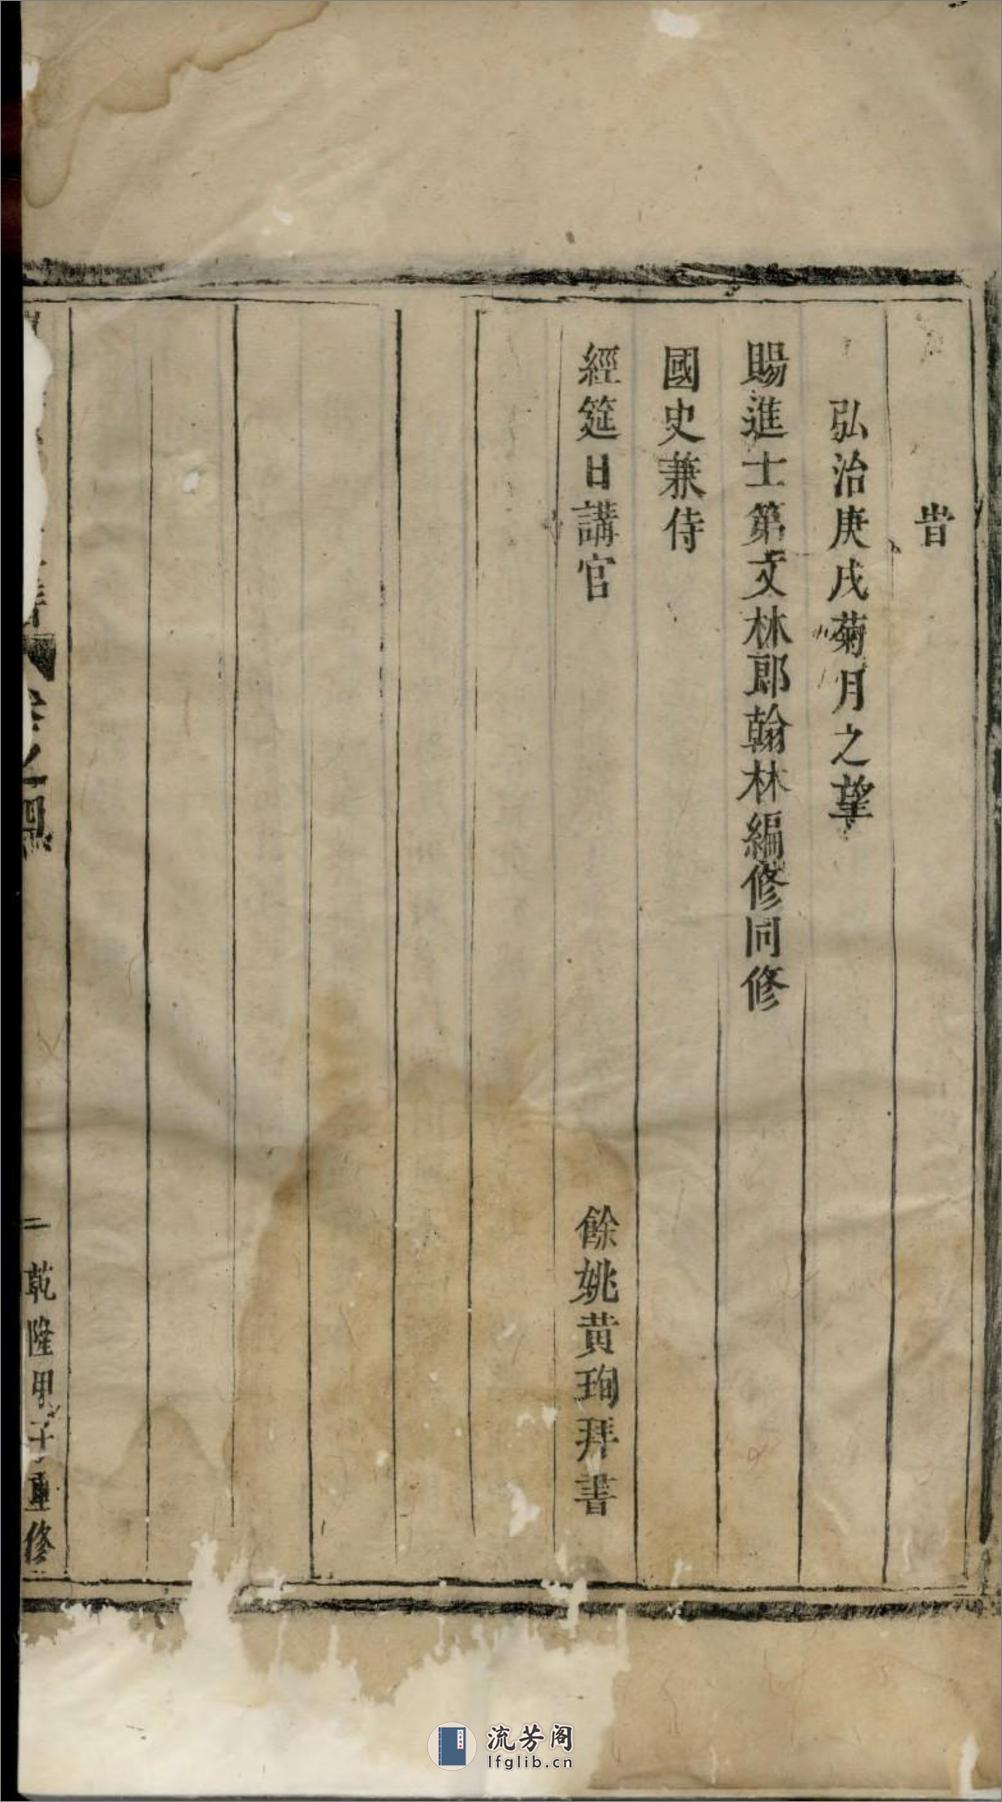 旹
弘治庚戌菊月之望
賜進士第文林郎翰林編修同修
國史兼侍
經筵日講官
餘姚黄珣拜書
卷之
二
乾隆甲子重修
流芳阁
lfglib.cn